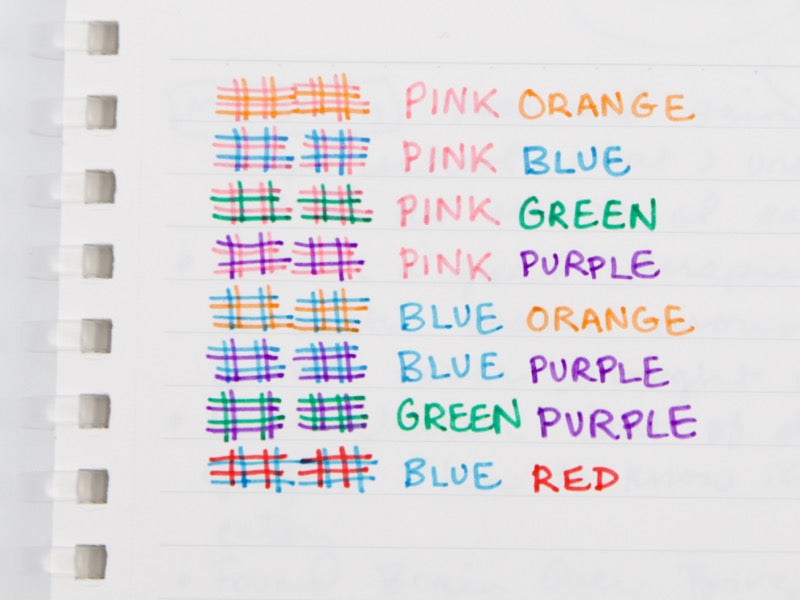 PINK ORANGE
PINK BLUE
PINK GREEN
PINK PURPLE
BLUE ORANGE
BLUE PURPLE
GREEN PURPLE
BLUE RED